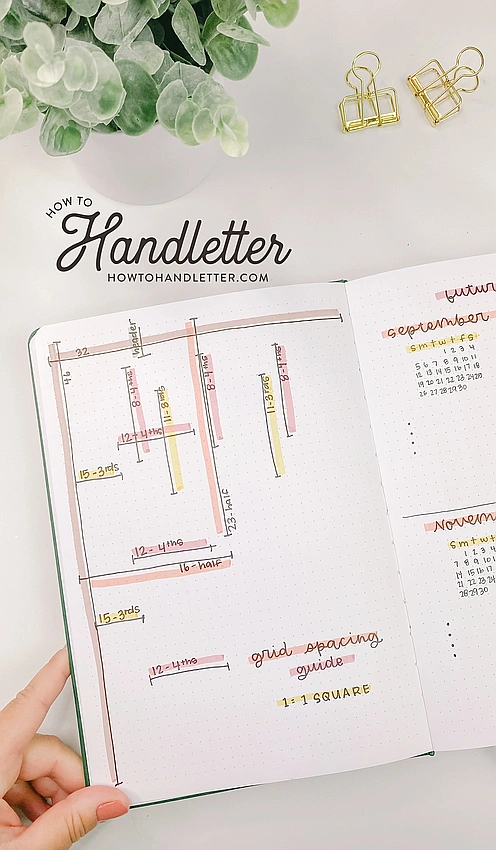 HOW TO
Handletter
HOWTOHANDLETTER.COM
32
header
46
8-4ths
11-3rds
12-4ths
15-3rds
8-4ths
11-3rds
8-4ths
23-half
12-4ths
16-half
15-3rds
12-4ths
grid spacing
guide
1:1 SQUARE
futur
september
s m t w t f s
1 2 3 4
5 6 7 8 9 10 11
12 13 14 15 16 17 18
19 20 21 22 23 24 25
26 27 28 29 30
Novem
s m t w t
1 2 3 4
7 8 9 10 11
14 15 16 17 18
21 22 23 24 25
28 29 30